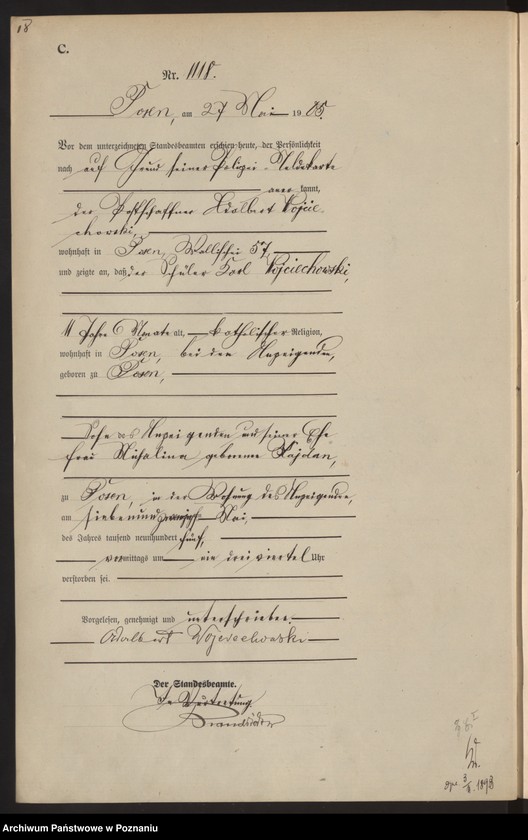 18
C.
Nr. 1118.
Posen, am 27 Mai 1905.
Vor dem unterzeichneten Standesbeamten erschien heute, der Persönlichkeit
nach auf Grund seiner Polizei-Meldekarte
kannt,
der Postschaffner Adalbert Wojcie-
chowski,
wohnhaft in Posen, Wallischei 57,
und zeigte an, daß der Schüler Karl Wojciechowski,
11 Jahre 6 Monate alt, katholischer Religion,
wohnhaft in Posen, bei dem Anzeigenden,
geboren zu Posen,
Sohn des Anzeigenden und seiner Ehe-
frau Michalina geborenen Kajdan,
zu Posen, in der Wohnung des Anzeigenden,
am siebenundzwanzigsten Mai,
des Jahres tausend neunhundert fünf,
vormittags um ein dreiviertel Uhr
verstorben sei.
Vorgelesen, genehmigt und unterschrieben.
Adalbert Wojciechowski
Der Standesbeamte.
In Vertretung
3/8. 1893
Archiwum Państwowe w Poznaniu